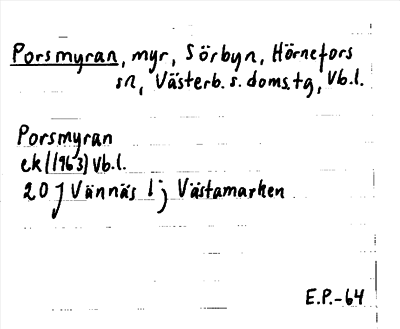 Porsmyran, myr, Sörbyn, Hörnefors
sn, Västerb. s. doms.tg, Vb.l.
Porsmyran
ek (1963) Vb.l.
20 J Vännäs l j Västamarken
E.P.-64